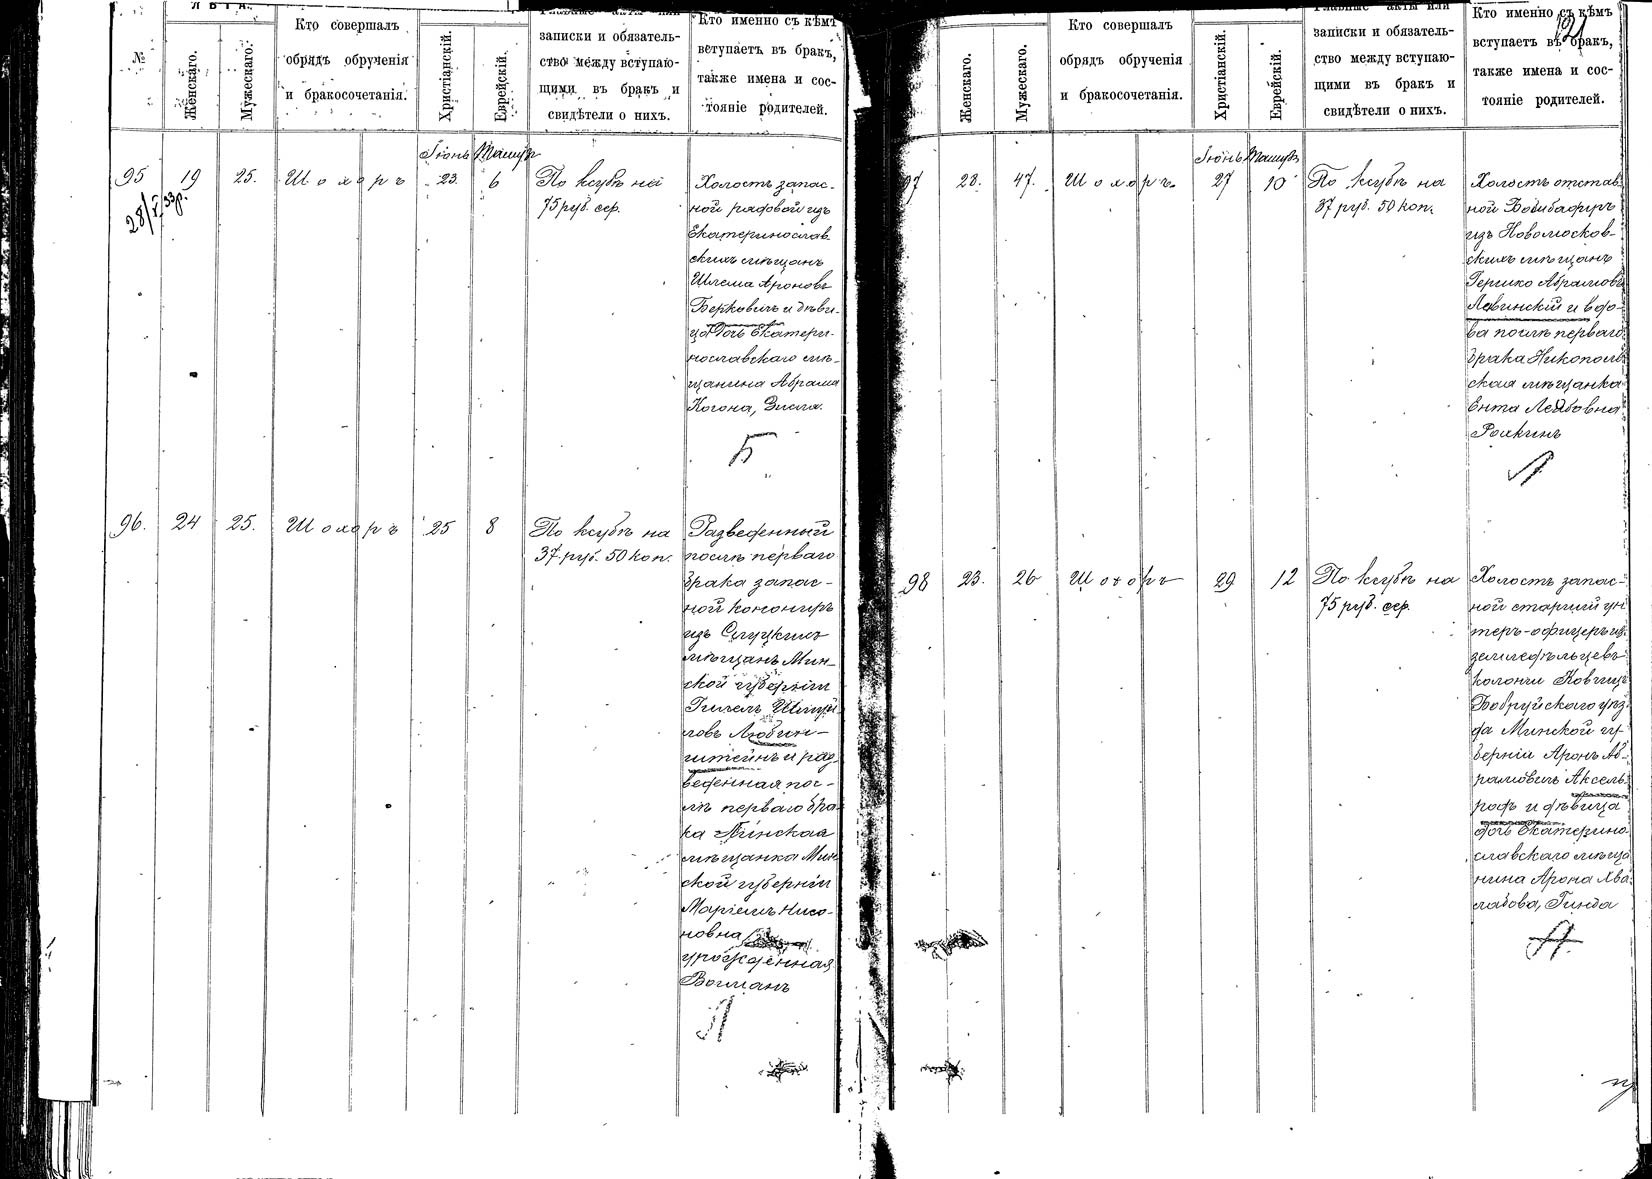 ЛѢТА.
№
Женскаго.
Мужескаго.
Кто совершалъ
обрядъ обрученія
и бракосочетанія.
Христіанскій.
Еврейскій.
Главные акты или
записки и обязатель-
ство между вступаю-
щими въ бракъ и
свидѣтели о нихъ.
Кто именно съ кѣмъ
вступаетъ въ бракъ,
также имена и сос-
тояніе родителей.
Іюнь
95
19
25.
Шохоръ
23.
6
По ксубѣ на
75 руб. сер.
Холостъ запас-
ной рядовой изъ
Екатеринослав-
скихъ мѣщанъ
Шлема Ароновъ
Берковичъ и дѣви-
ца дочь Екатери-
нославскаго мѣ-
щанина Абрама
Когона, Зисля.
Б
96.
24
25.
Шохоръ
25
8
По ксубѣ на
37 руб. 50 коп.
Разведенный
послѣ перваго
брака запас-
ной канониръ
изъ Слуцкихъ
мѣщанъ Мин-
ской губерніи
Гилелъ
ловъ Любин-
штейнъ и раз-
веденная пос-
лѣ перваго бра-
ка Пинская
мѣщанка Мин
ской губерніи
Маріемъ Нисо-
новна
урожденная
Вогманъ
Л
Женскаго.
Мужескаго.
Кто совершалъ
обрядъ обрученія
и бракосочетанія.
Христіанскій.
Еврейскій.
Главные акты или
записки и обязатель-
ство между вступаю-
щими въ бракъ и
свидѣтели о нихъ.
Кто именно съ кѣмъ
вступаетъ въ бракъ,
также имена и сос-
тояніе родителей.
121
Іюнь
97
28.
47.
Шохоръ
27
10
По ксубѣ на
37 руб. 50 коп.
Холостъ отстав
ной
изъ Новомосков-
скихъ мѣщанъ
Гершко Абрамовъ
Левинскій и вдо-
ва послѣ перваго
брака Никополь
ская мѣщанка
Ента Лейбовна
Роикинъ
Л
98
23.
26
Шохоръ
29
12
По ксубѣ на
75 руб. сер.
Холостъ запас-
ной старшій ун
теръ-офицеръ из
земледѣльцевъ
колоніи
Бобруйскаго уѣз
да Минской гу-
берніи Аронъ Аб-
рамовичъ Аксель
родъ и дѣвица
дочь Екатерино
славскаго мѣща
нина Арона Хва
Гинда
А